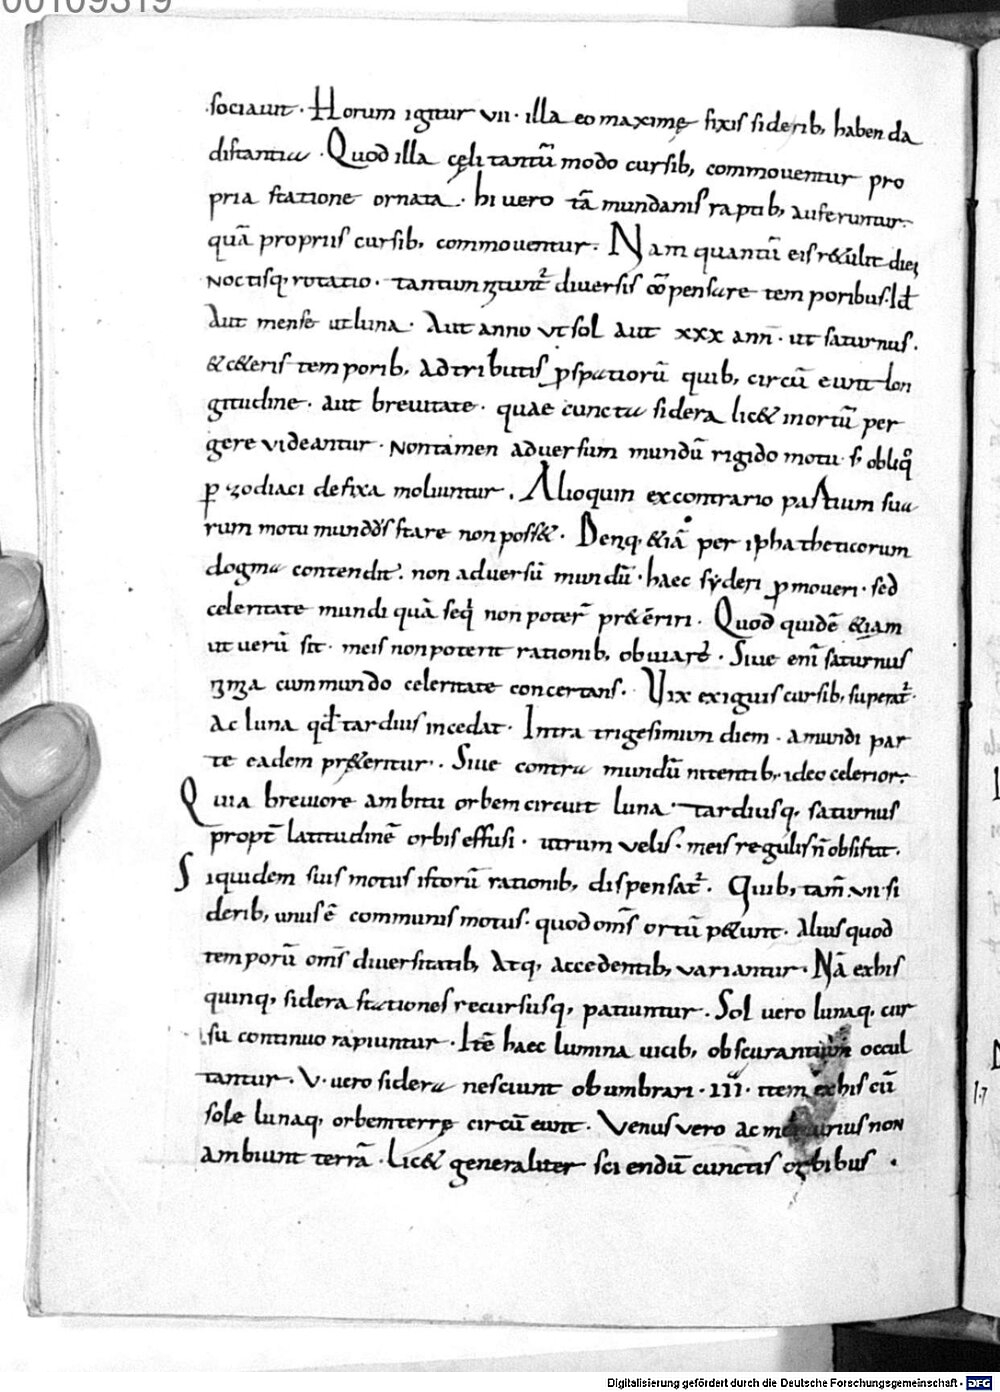 00109319
sociauit · Horum igitur vii · illa eo maximę fixis siderib; habenda
distantia · Quod illa cęli tantū modo cursib; commoventur pro
pria statione ornata · hi vero tā mundanis raptib; auferuntur
quā propriis cursib; commoventur · Nam quantū eis r&ulit diei
Noctisq; rotatio · tantum diversis cōpensare temporibus · Id
Aut mense ut luna · Aut anno ut sol aut xxx ann̄ · ut saturnus ·
& c&eris temporib; adtributis ꝓ spatiorū quib; circū eunt lon
gitudine · aut brevitate · quae cuncta sidera lic& in ortū per
gere videantur · Non tamen adversum mundū rigido motu · s; obliq̊
ꝑ zodiaci defixa moliuntur . Alioquin ex contrario partium sua
rum motu mund stare non poss& · Denq; &iā per ipha theticorum
dogma contendit . non adversū mundū · haec syderi ꝓmoveri · sed
celeritate mundi quā seq non poter̄ pr&eriri · Quod quidē &iam
ut verū sit · meis non poterit rationib; obviare · Sive eni saturnus
cum mundo celeritate concertans · Vix exiguis cursib; superat̄ ·
Ac luna qđ tardius incedat · Intra trigesimum diem · a mundi par
te eadem pr&eritur · Sive contra mundū nitentib; ideo celerior
Quia breviore ambitu orbem circuit luna · tardiusq; saturnus
propt̄ latitudinē orbis effusi · utrum velis · meis regulis n̄ obsistit .
Siquidem suis motus istorū rationib; dispensat̄ . Quib; tam̄ · vii · si
derib; unus ē communis motus · quod om̄s ortū p&unt · Alius quod
temporū om̄s diversitatib; Atq; accedentib; variantur · Nā ex his
quinq; sidera stationes recursusq; patiuntur . Sol vero lunaq; cur
su continuo rapiuntur · Itē haec lumina vicib; obscurantium occul
tantur · V · vero sidera nesciunt obumbrari · III · item ex his cū
sole lunaq; orbem terrę circū eunt · Venus vero ac mercurius non
ambiunt terrā · lic& generaliter sciendū cunctis orbibus ·
Digitalisierung gefördert durch die Deutsche Forschungsgemeinschaft - DFG